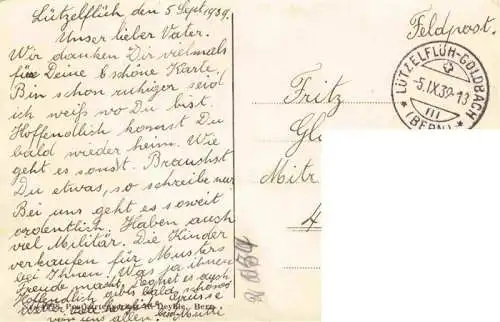 Lützelflüh den 5 Sept. 1939.
Unser lieber Vater.
Wir danken Dir vielmals
für Deine schöne Karte.
Bin schon ruhiger seid
ich weiß wo Du bist.
Hoffendlich kommst Du
bald wieder heim. Wie
geht es sonst. Brauchst
Du etwas, so schreibe nur
Bei uns geht es soweit
ordentlich. Haben auch
viel Militär. Die Kinder
verkaufen für Musters
bei Ihnen! Was ja ihnen
Freude macht. Regnet es auch
Hoffendlich gibts bald schönes
Grüsse
von uns allen Mutti
Feldpost.
LÜTZELFLÜH-GOLDBACH
-5.IX.39-13
III
(BERN)
Fritz
Gl
Mitr
4